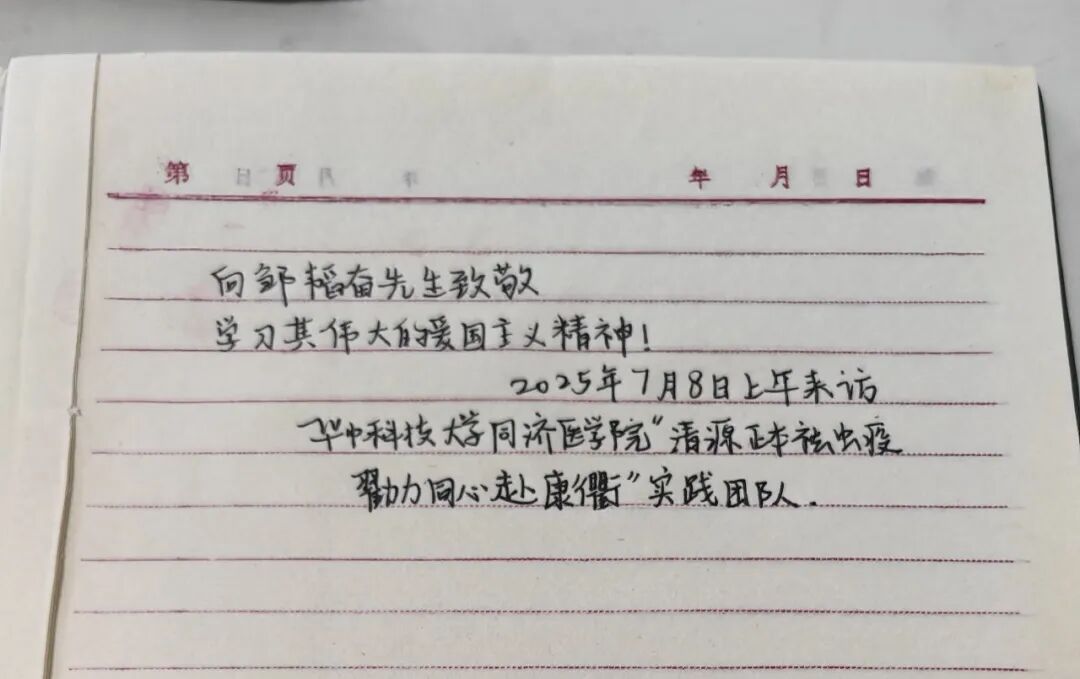 第 页 年 月 日
向邹韬奋先生致敬
学习其伟大的爱国主义精神!
2025年7月8日上午来访
华中科技大学同济医学院"清源正本祛虫疫
勠力同心赴康衢"实践团队.